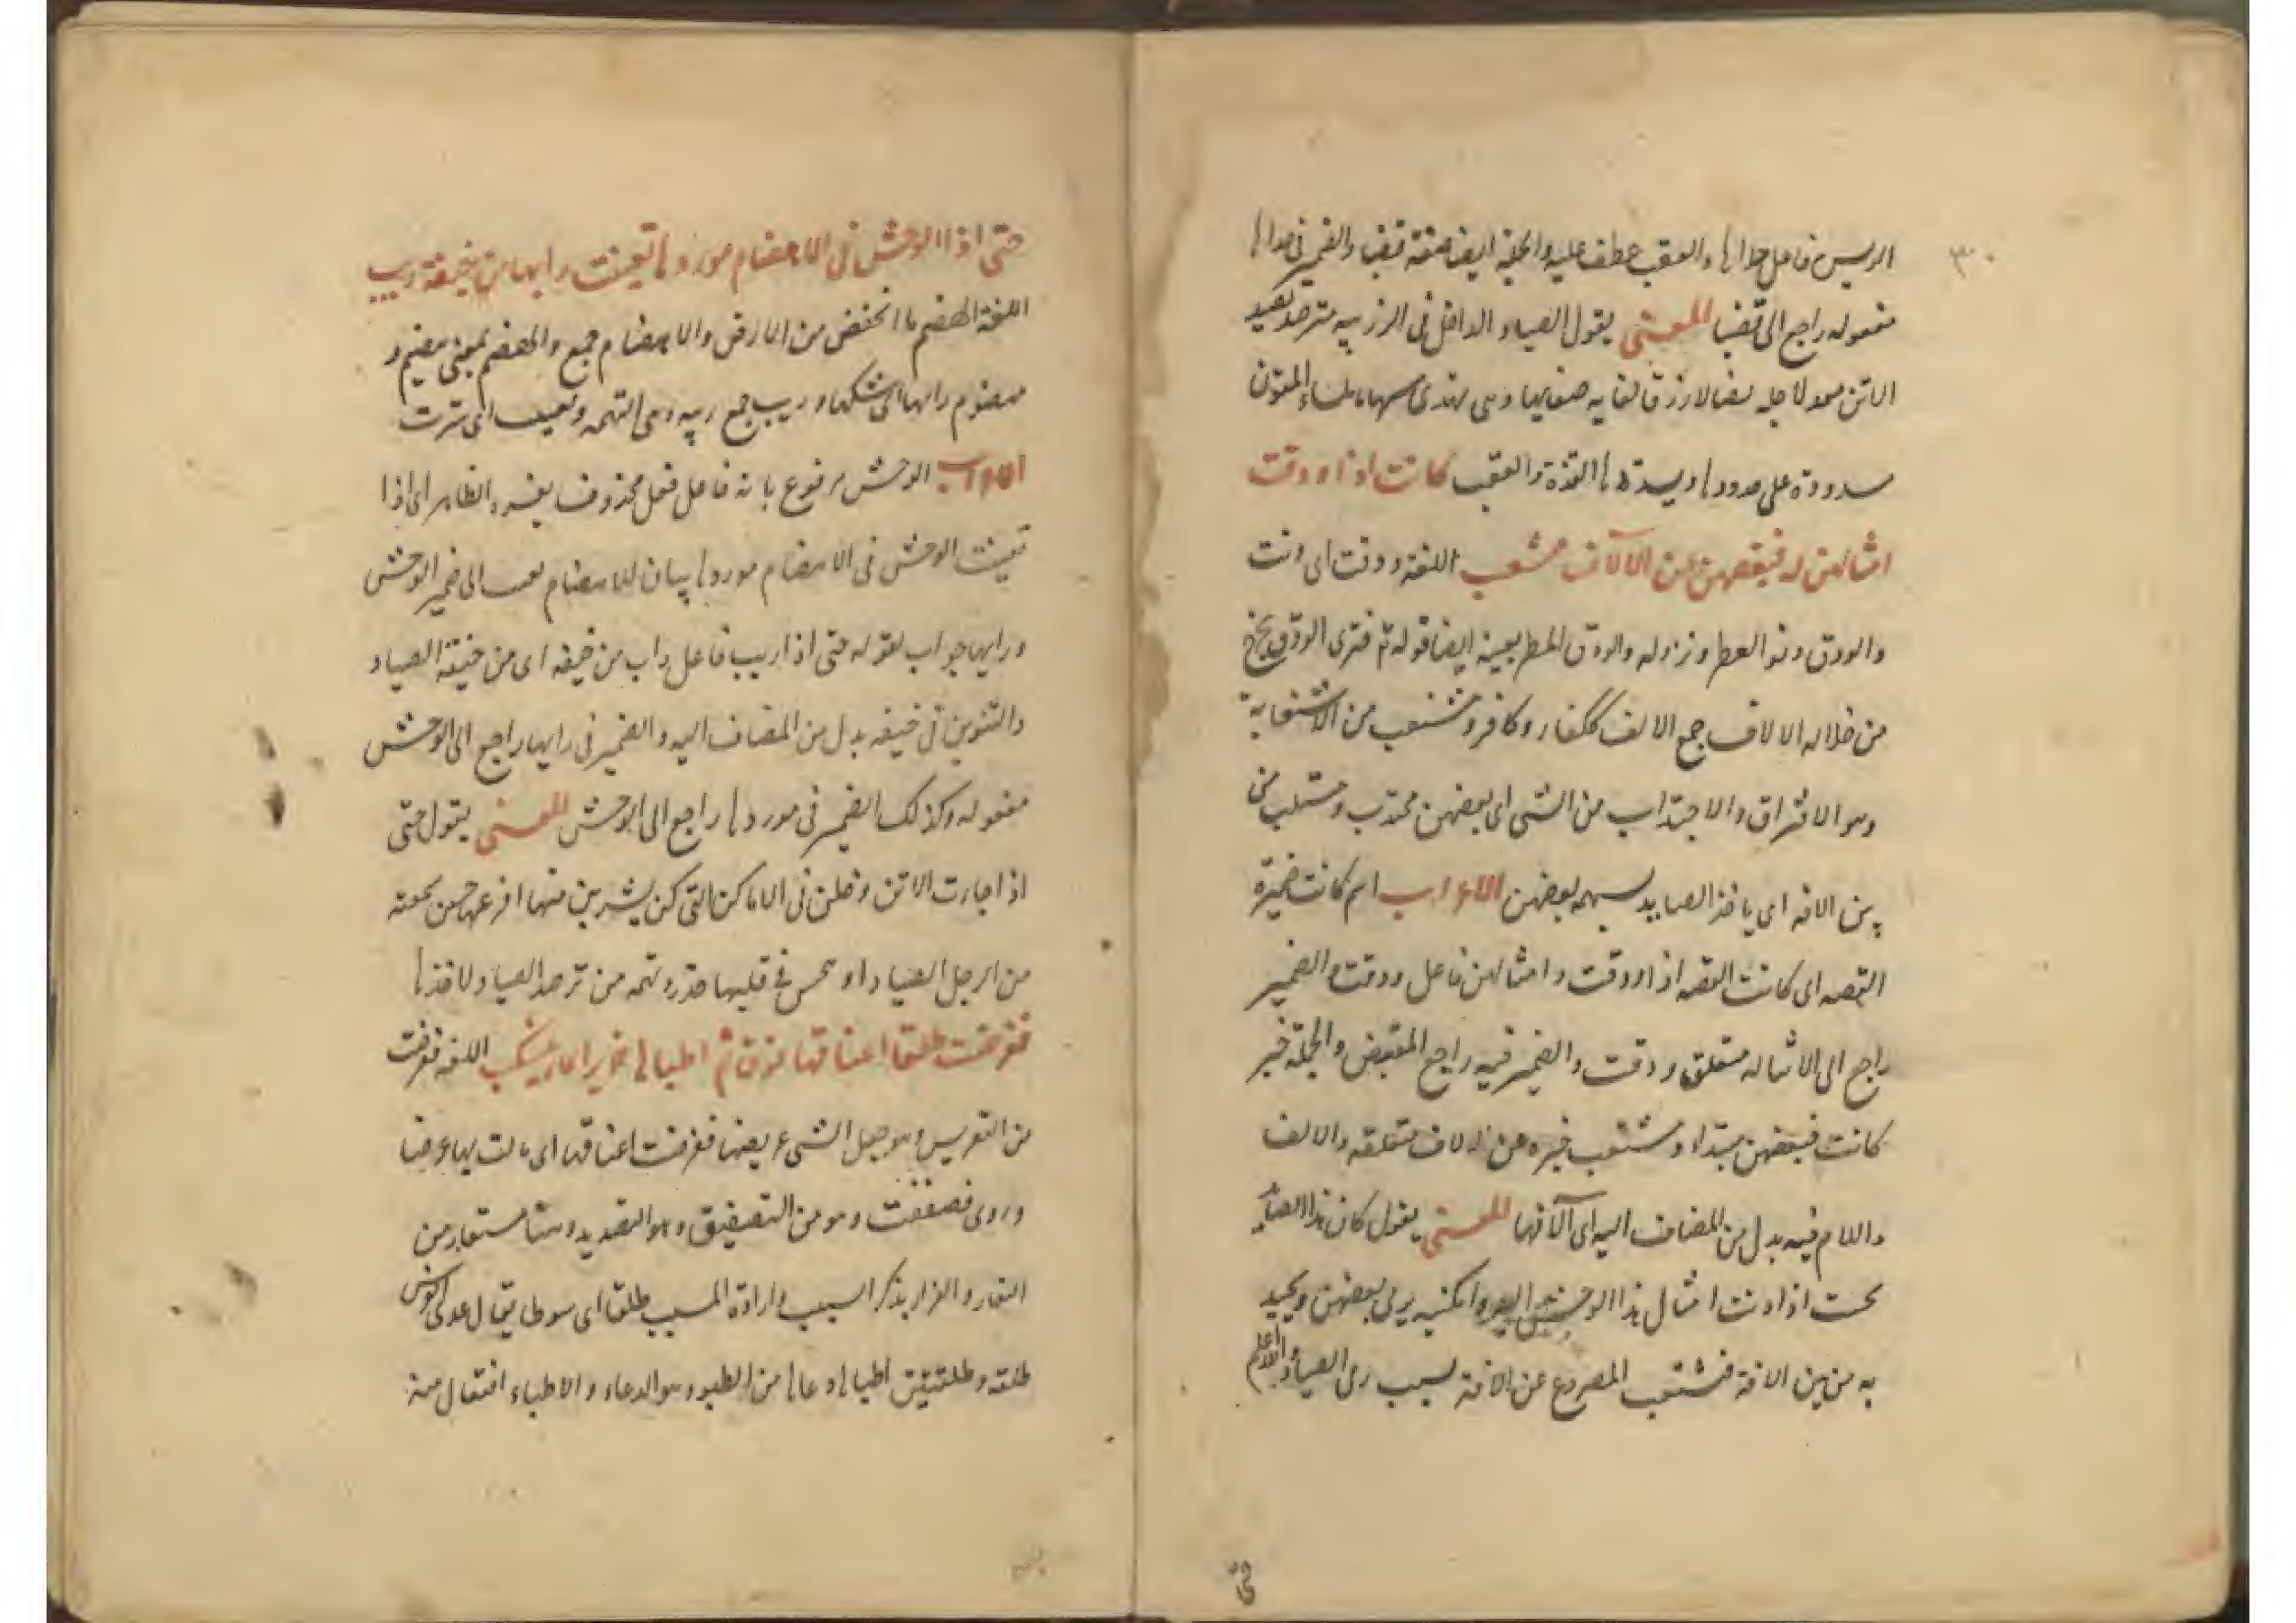 ٣٠
الريس فاعل حداها والعقب عطف عليه والجملة ايضا صفة قضبا والضمير في حداها
مفعوله راجع الى قضبا المعنى يقول الصياد الداخل في الزريبه مترصد لصيد
الاتن معد لاجله
مسدودة على حدودها القذة والعقب كانت اذا ودقت
امثالهن له فبعضهن عن الآلاف مشتعب اللغة ودقت اى دنت
والودق دنو المطر ونزوله والودق المطر بعينه ايضا قوله تم فترى الودق يخرج
من خلاله الالاف جمع الالف ككفار وكافر ومشتعب من الاشتعابة
وهو الافتراق والاجتذاب من الشى اى بعضهن مجتذب ومستلب من
بين الافه اى ياخذ الصايد بسهمه بعضهن الاعراب اسم كانت ضميرة
القصه اى كانت القصه اذا ودقت وامثالهن فاعل ودقت والضمير
راجع الى الاتن له متعلق ودقت والضمير فيه راجع المقتنص والجملة خبر
كانت فبعضهن مبتداء ومشتعب خبره عن الالاف متعلقه والالف
واللام فيه بدل من المضاف اليه اى آلافها المعنى يقول كان هذا الصايد
بحيث اذا دنت امثال هذا الوحش اليه وامكنته يرمى بعضهن ويجيد
به من بين الافة فمشتعب المصروع عن الافة بسبب رمى الصياد والله اعلم
حتى
حتى اذا الوحش في الاهضام موردها تغيبت رابها من خيفة ريب
اللغة الهضم ما انخفض من الارض والاهضام جمع والهضم بمعنى هضيم و
مهضوم رابها اى شككها وريب جمع ريبه وهى التهمه وتغيبت اى سترت
الاعراب الوحش مرفوع بانه فاعل فعل محذوف يفسره الظاهر اى اذا
تغيبت الوحش في الاهضام موردها بيان للاهضام الى ضمير الوحش
ورابها جواب لقوله حتى اذا ريب فاعل راب من خيفه اى من خيفة الصياد
والتنوين في خيفه بدل من المضاف اليه والضمير في رابها راجع الى الوحش
مفعوله وكذلك الضمير في موردها راجع الى الوحش المعنى يقول حتى
اذا جاءت الاتن دخلن في الاماكن التى كن يشربن منها افزعهن حس سمعته
من الرجل الصياد او تحس في قلبها حذره تهمه من ترصد الصياد لاخذها
فعرضت طلقا اعناقها فرقا ثم اطباها خرير الماء ينسكب اللغه فعرضت
من التعريض وهو جعل الشى عريضا فعرضت اعناقها اى مالت بها عرضا
وروى فصفقت وهو من التصفيق وهو التصديد وهنا مستعار من
النفار والفرار بذكر السبب وارادة المسبب طلقا اى شوطا يقال عدى الفرس
طلقه وطلقتين اطباها دعاها من الطبو وهو الدعاء والاطباء افتعال منه